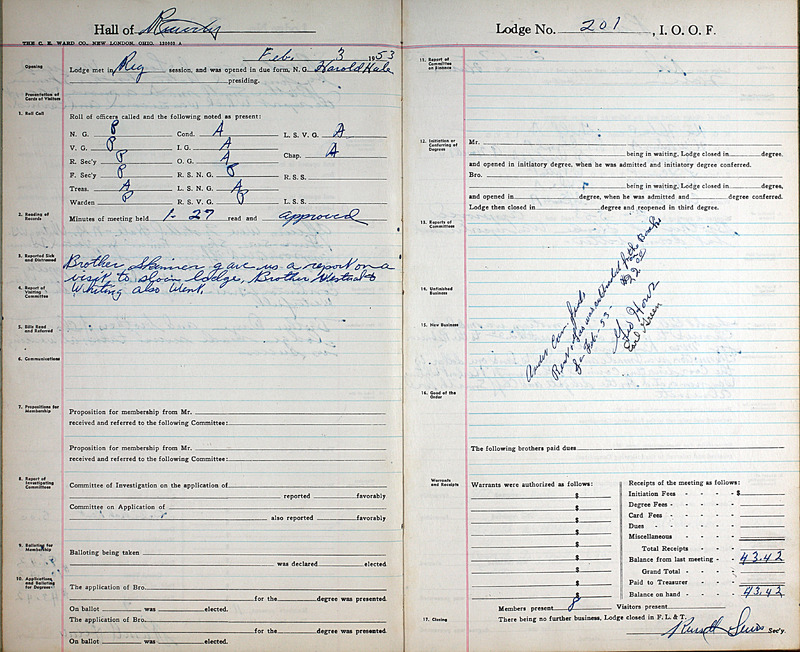 Hall of
THE C. E. WARD CO., NEW LONDON, OHIO.
Feb. 3 1953
Opening
Lodge met in Reg session, and was opened in due form, N. G. Harold Hale
presiding.
Presentation of Cards of Visitors
1. Roll Call
Roll of officers called and the following noted as present:
N. G. P Cond. A L. S. V. G. A
V. G. P I. G. A Chap. A
R. Sec'y P O. G. A
F. Sec'y P R. S. N. G. P R. S. S.
Treas. A L. S. N. G. A
Warden P R. S. V. G. P L. S. S.
2. Reading of Records
Minutes of meeting held 1- 27 read and approved
3. Reported Sick and Distressed
Brother Skinner gave us a report on a
visit to lodge, Brother
4. Report of Visiting Committee
Whiting also Went.
5. Bills Read and Referred
6. Communications
7. Propositions for Membership
Proposition for membership from Mr.
received and referred to the following Committee:
Proposition for membership from Mr.
received and referred to the following Committee:
8. Report of Investigating Committees
Committee of Investigation on the application of
reported favorably
Committee on Application of
also reported favorably
9. Balloting for Membership
Balloting being taken
was declared elected.
10. Applications and Balloting for Degrees
The application of Bro.
for the degree was presented.
On ballot was elected.
The application of Bro.
for the degree was presented.
On ballot was elected.
Lodge No. 201, I. O. O. F.
11. Report of Committee on Finance
12. Initiation or Conferring of Degrees
Mr.
being in waiting, Lodge closed in degree,
and opened in initiatory degree, when he was admitted and initiatory degree conferred.
Bro.
being in waiting, Lodge closed in degree,
and opened in degree, when he was admitted and degree conferred.
Lodge then closed in degree and reopened in third degree.
13. Reports of Committees
14. Unfinished Business
15. New Business
for Feb - 53 -
$22
Earl Green
16. Good of the Order
The following brothers paid dues
Warrants and Receipts
Warrants were authorized as follows:
$
$
$
$
$
$
$
$
$
Receipts of the meeting as follows:
Initiation Fees - $
Degree Fees
Card Fees
Dues
Miscellaneous
Total Receipts
Balance from last meeting 43.42
Grand Total
Paid to Treasurer
Balance on hand 43.42
Members present 8 Visitors present
17. Closing
There being no further business, Lodge closed in F. L. & T.
Russell Lewis Sec'y.